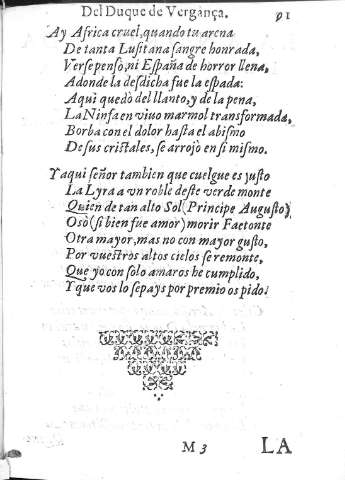 Del Duque de Vergança. 91
Ay Africa cruel, quando tu arena
De tanta Lusitana sangre honrada,
Verse pensò, ni España de horror llena,
Adonde la desdicha fue la espada:
Aqui quedò del llanto, y de la pena,
La Ninfa en viuo marmol transformada,
Borba con el dolor hasta el abismo
De sus cristales, se arrojò en si mismo.
Y aqui señor tambien que cuelgue es justo
La Lyra a vn roble deste verde monte
Quien de tan alto Sol (Principe Augusto)
Osò (si bien fue amor) morir Faetonte
Otra mayor, mas no con mayor gusto,
Por vuestros altos cielos se remonte,
Que yo con solo amaros he cumplido,
Y que vos lo sepays por premio os pido.
M 3 LA